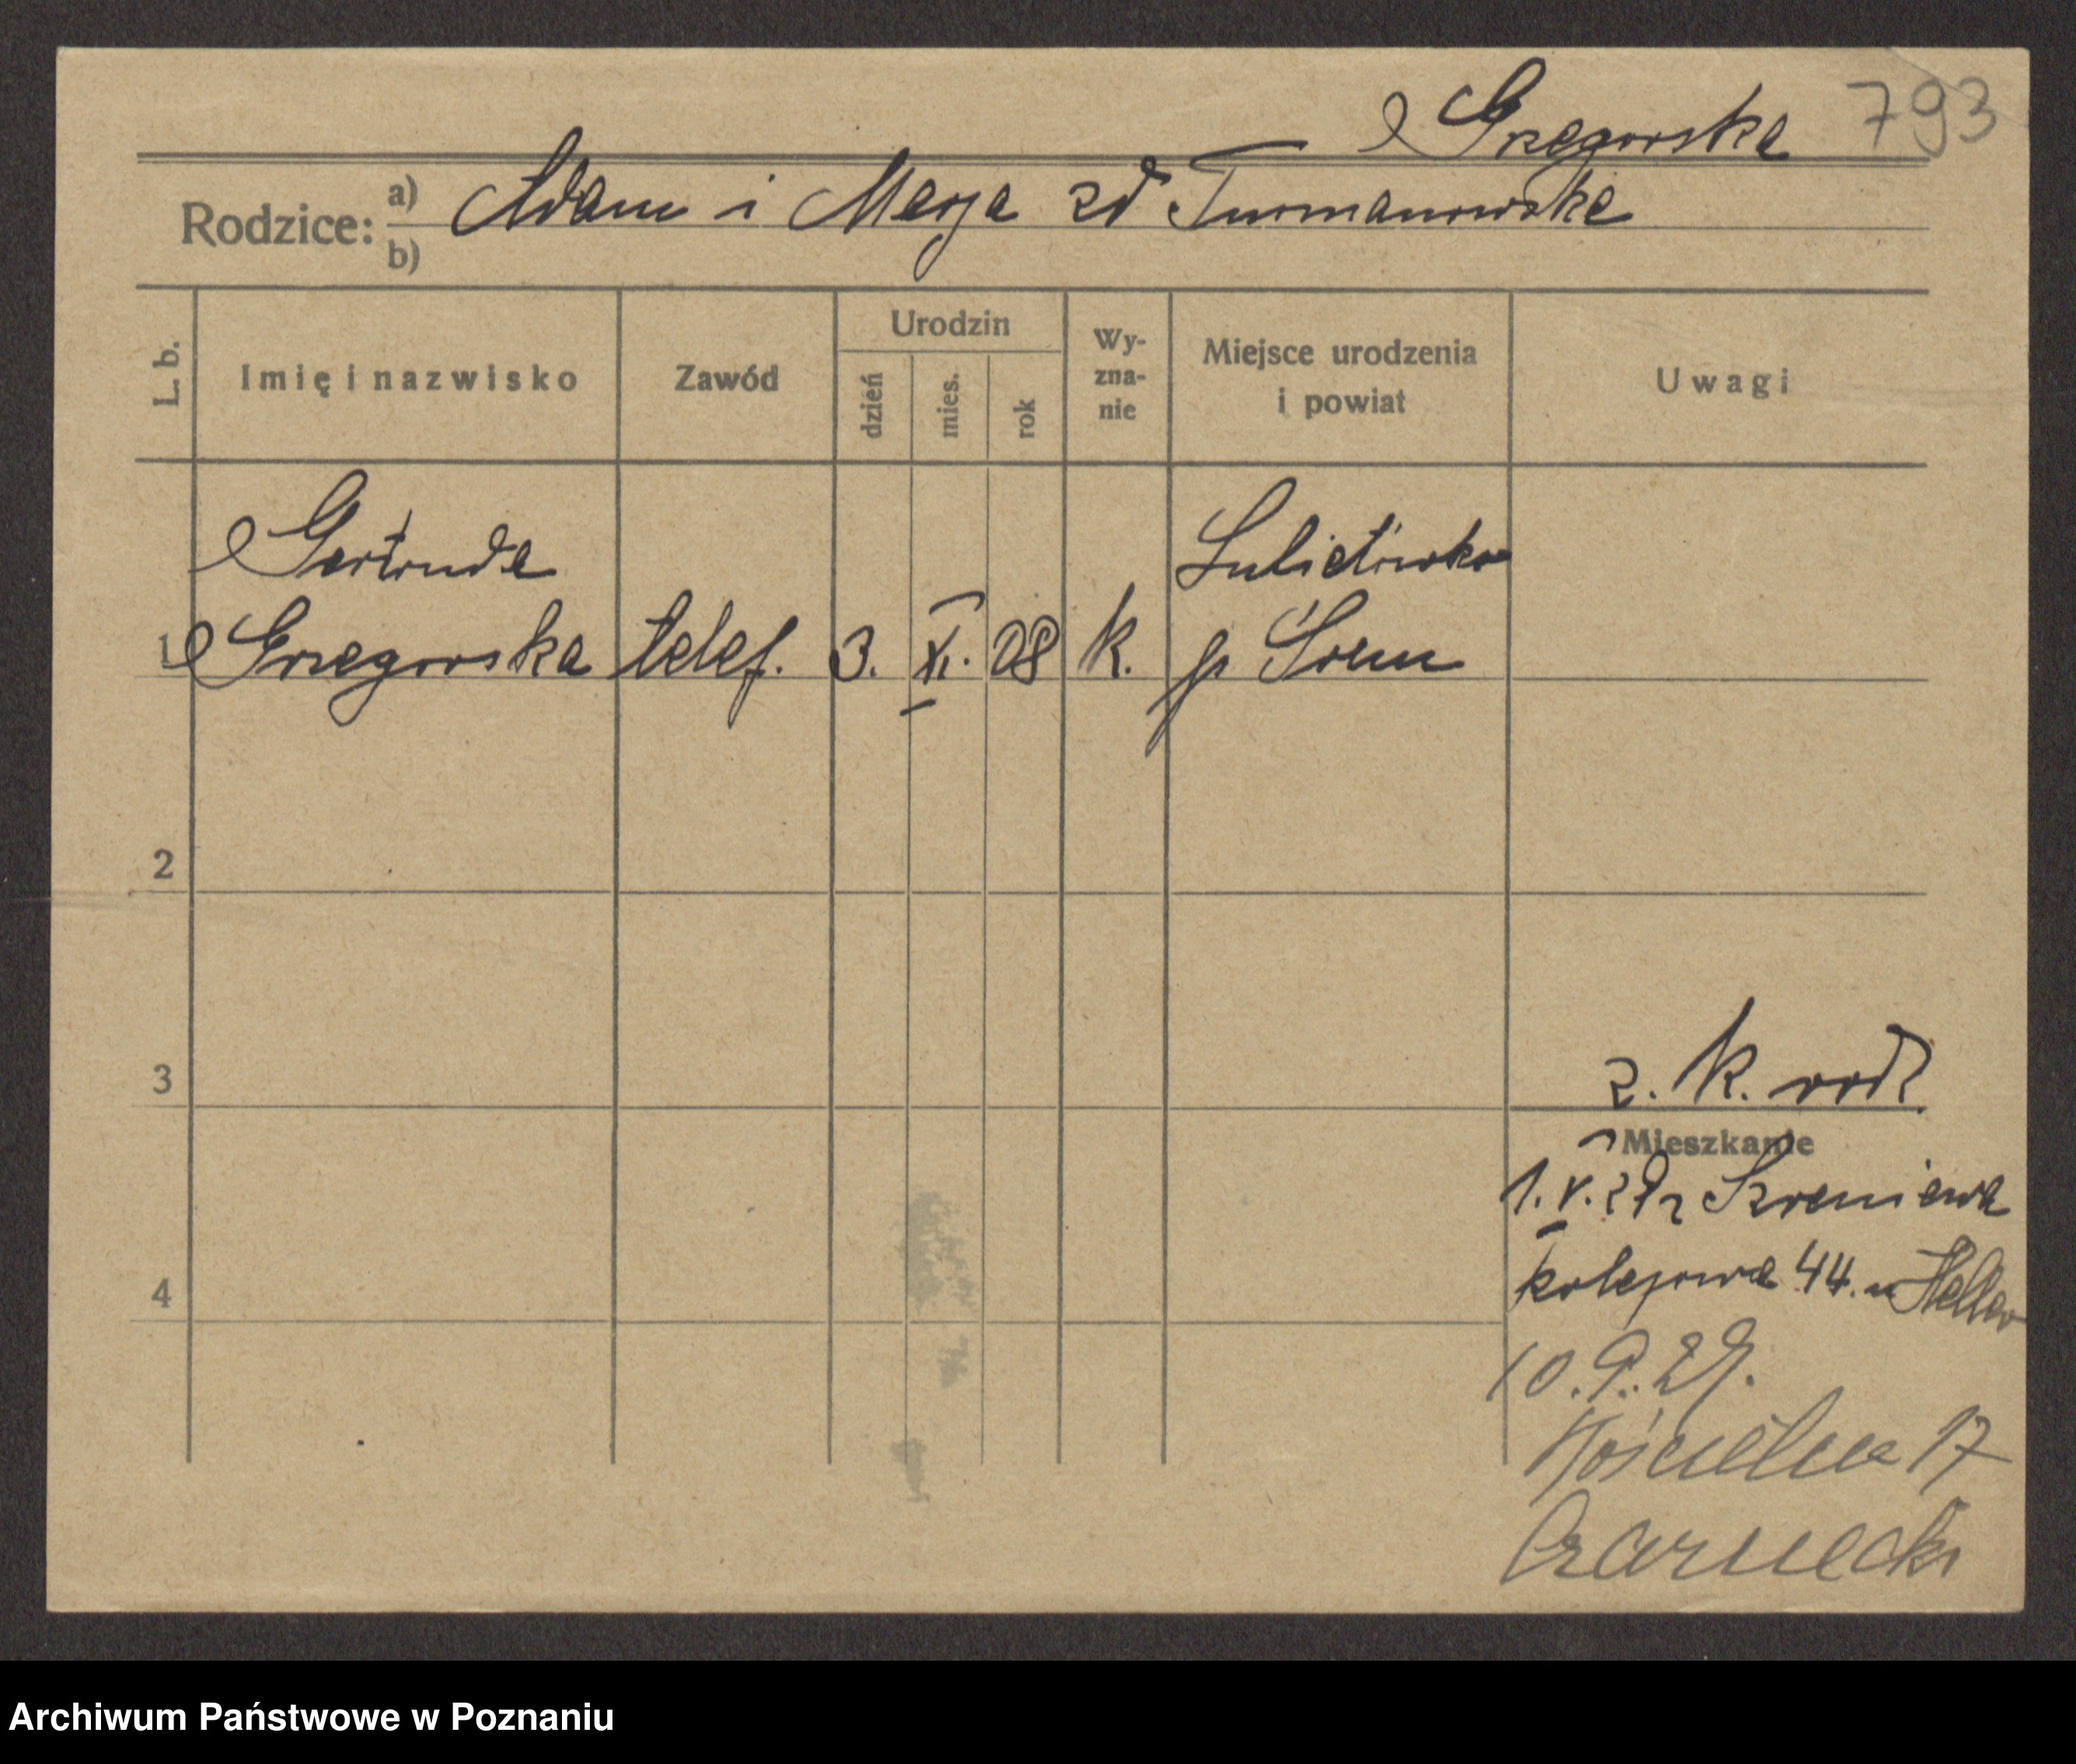 Grzegorska 793
Rodzice: a) Adam i Marja zd Turmanowska
b)
L. b. Imię i nazwisko Zawód Urodzin dzień mies. rok Wy-zna-nie Miejsce urodzenia i powiat Uwagi
Gertruda Lubiatówko
1 Grzegorska telef. 3. XI. 08 k. p Śrem
2
3 z. k. rodz.
Mieszkanie
1. V. 29 z
kolejowa 44. u Heller
4
10. 9. 29.
Kościelna 17
Czarnecki
Archiwum Państwowe w Poznaniu